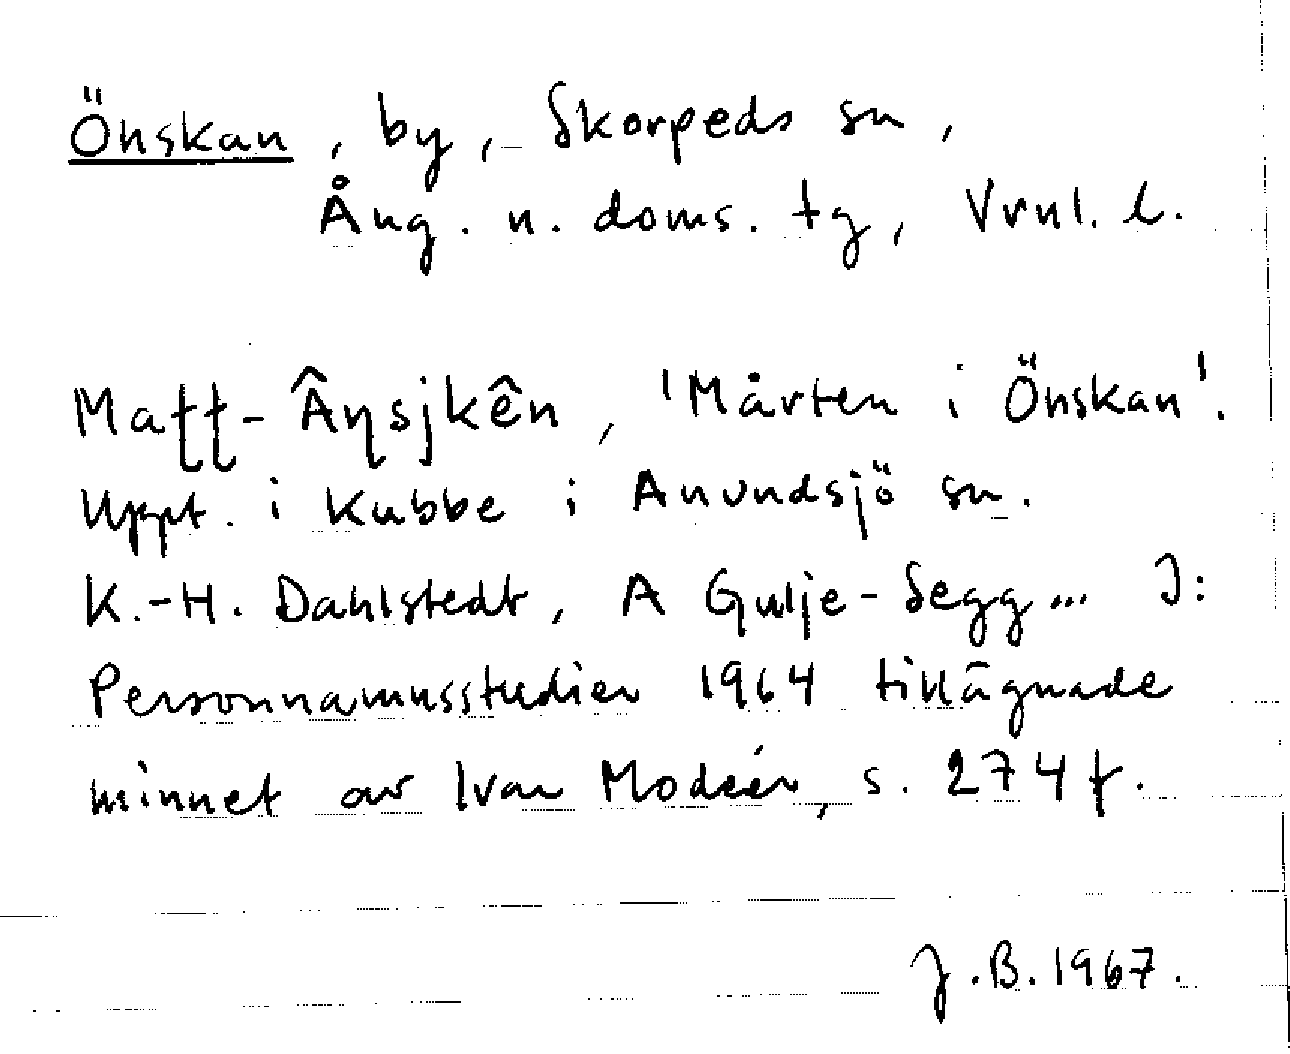 Önskan, by, Skorpeds sn,
Ång. n. doms. tg, Vrnl. l.
Maƫƫ-Âꞑsjkên, 'Mårten i Önskan'.
Uppt. i Kubbe i Anundsjö sn.
K.-H. Dahlstedt, A Gulje-Segg... I:
Personnamnsstudier 1964 tillägnade
minnet av Ivar Modéer, s. 274 f.
J.B. 1967.